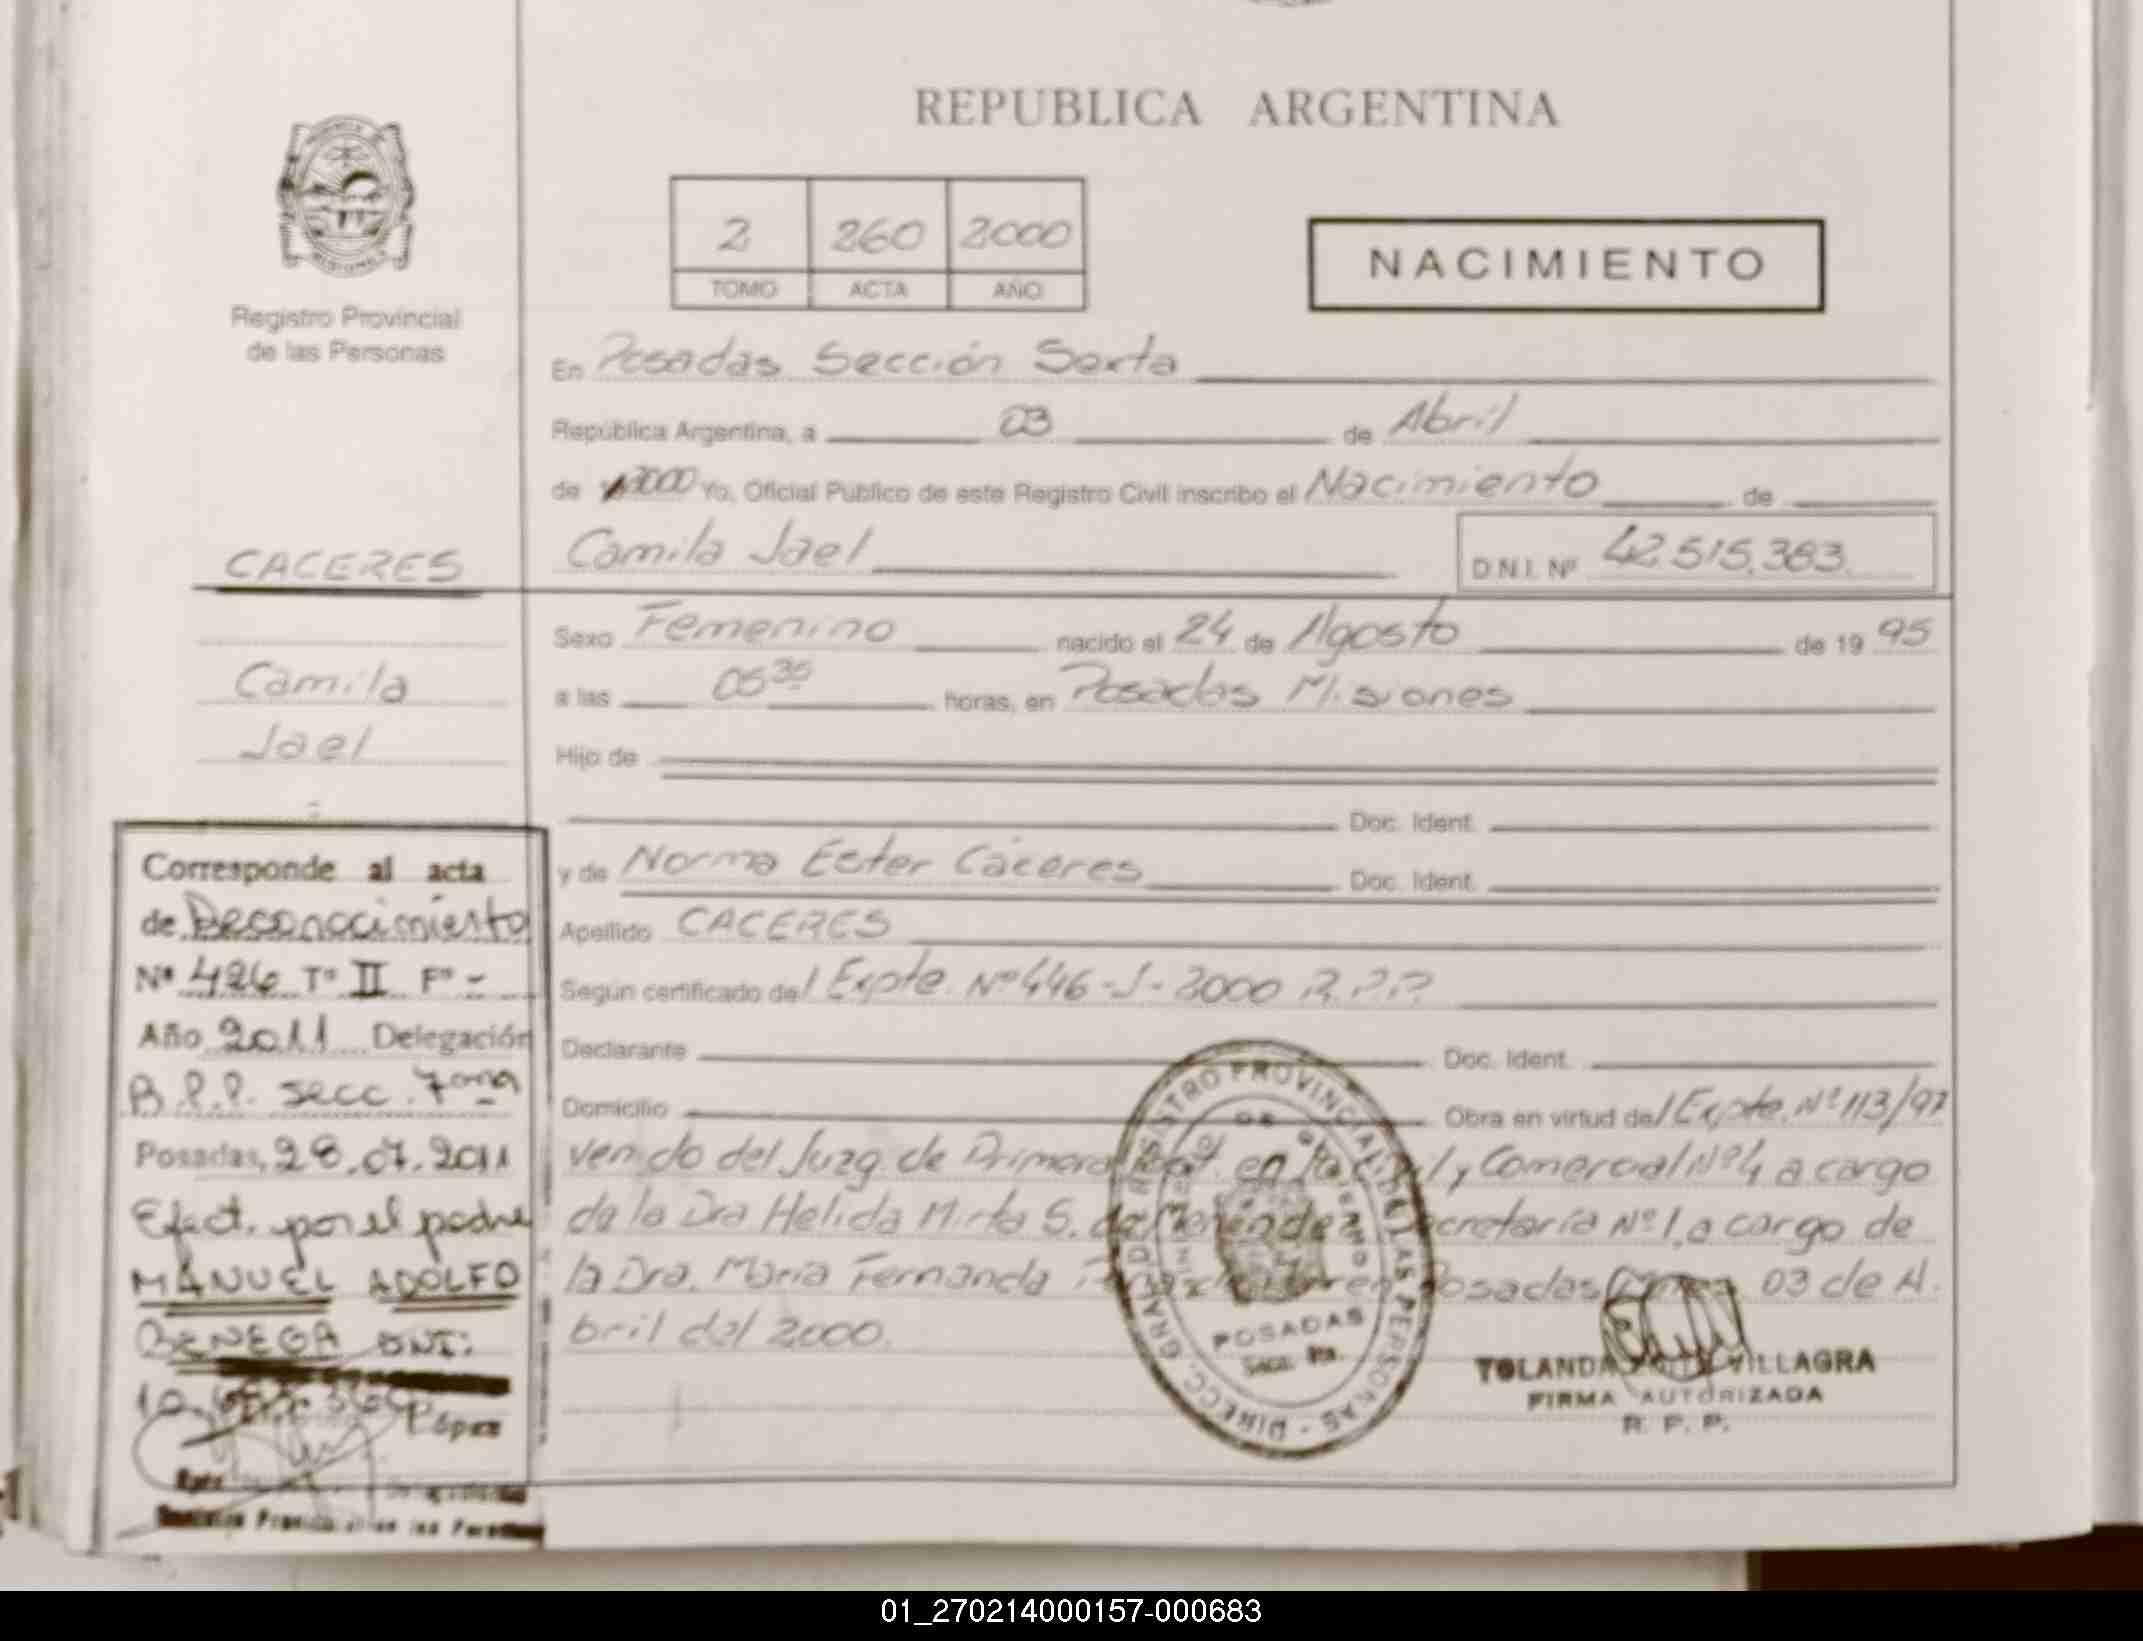 REPUBLICA ARGENTINA
2 260 2000
TOMO ACTA AÑO
NACIMIENTO
Registro Provincial
de las Personas
En Posadas Sección Sexta
República Argentina, a 03 de Abril
de 2000 Yo, Oficial Público de este Registro Civil inscribo el Nacimiento de
CACERES
Camila Jael
D.N.I. Nº 42.515.383.
Sexo Femenino nacido el 24 de Agosto de 19 95
Camila
a las horas, en Posadas Misiones
Jael
Hijo de
Doc. Ident.
y de Norma Ester Cáceres Doc. Ident.
Apellido CACERES
Según certificado del Expte. Nº 446-J-2000 R.P.P.
Declarante Doc. Ident.
Domicilio Obra en virtud del Expte. Nº 113/97
venido del Juzg. de Primera en lo Civil y Comercial Nº 4 a cargo
de la Dra Helida Mirta S. de Secretaría Nº 1, a cargo de
la Dra. María Fernanda Posadas 03 de A
bril del 2000.
Corresponde al acta
de Reconocimiento
Nº 426 Tº II Fº -
Año 2011 Delegación
R.P.P. secc. 7ma
Posadas, 28.07.2011
Efect. por el padre
MANUEL ADOLFO
BENEGA DNI:
López
REGISTRO PROVINCIAL DE LAS PERSONAS - DIRECC. GRAL. D
POSADAS
VILLAGRA
FIRMA AUTORIZADA
R. P. P.
01_270214000157-000683